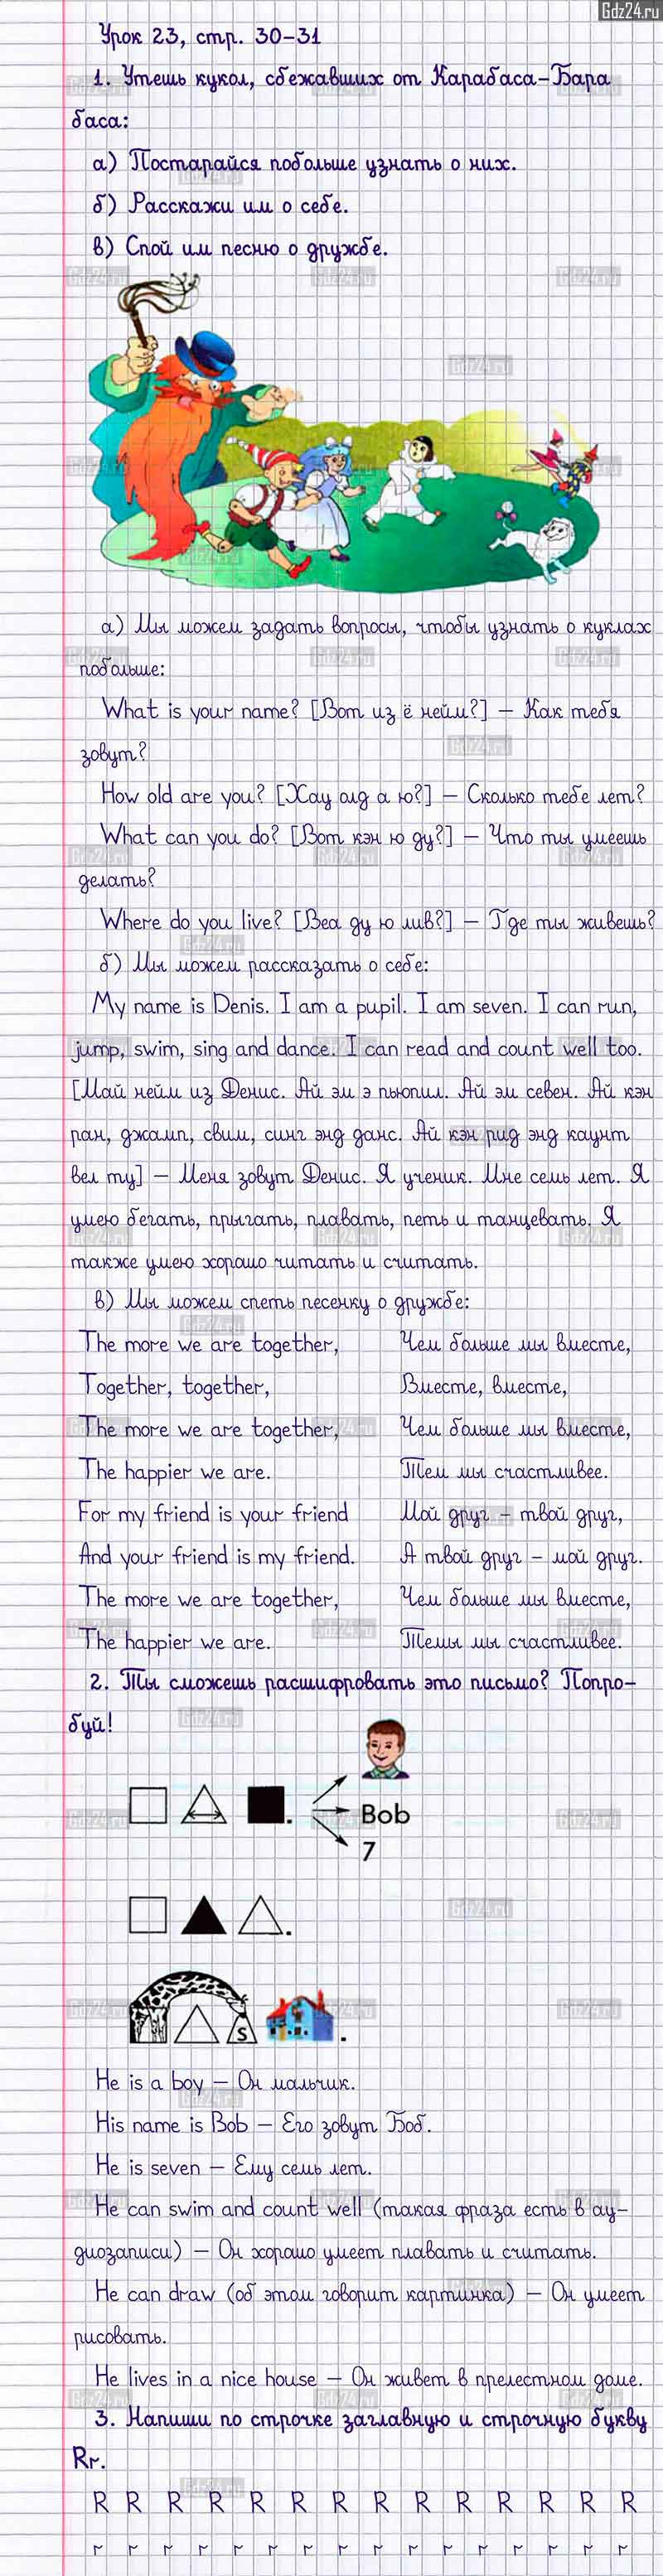 Gdz24.ru
Урок 23, стр. 30-31
1. Утешь кукол, сбежавших от Карабаса-Бара
баса:
а) Постарайся побольше узнать о них.
б) Расскажи им о себе.
в) Спой им песню о дружбе.
а) Мы можем задать вопросы, чтобы узнать о куклах
побольше:
What is your name? [Вот из ё нейм?] – Как тебя
зовут?
How old are you? [Хау олд а ю?] – Сколько тебе лет?
What can you do? [Вот кэн ю ду?] – Что ты умеешь
делать?
Where do you live? [Веа ду ю лив?] – Где ты живешь?
б) Мы можем рассказать о себе:
My name is Denis. I am a pupil. I am seven. I can run,
jump, swim, sing and dance. I can read and count well too.
[Май нейм из Денис. Ай эм э пьюпил. Ай эм севен. Ай кэн
ран, джамп, свим, синг энд данс. Ай кэн рид энд каунт
вел ту] – Меня зовут Денис. Я ученик. Мне семь лет. Я
умею бегать, прыгать, плавать, петь и танцевать. Я
также умею хорошо читать и считать.
в) Мы можем спеть песенку о дружбе:
The more we are together, Чем больше мы вместе,
Together, together, Вместе, вместе,
The more we are together, Чем больше мы вместе,
The happier we are. Тем мы счастливее.
For my friend is your friend Мой друг – твой друг,
And your friend is my friend. А твой друг – мой друг.
The more we are together, Чем больше мы вместе,
The happier we are. Темы мы счастливее.
2. Ты сможешь расшифровать это письмо? Попро-
буй!
Bob
7
S
He is a boy – Он мальчик.
His name is Bob – Его зовут Боб.
He is seven – Ему семь лет.
He can swim and count well (такая фраза есть в ау-
диозаписи) – Он хорошо умеет плавать и считать.
He can draw (об этом говорит картинка) – Он умеет
рисовать.
He lives in a nice house – Он живет в прелестном доме.
3. Напиши по строчке заглавную и строчную букву
Rr.
R R R R R R R R R R R R R R
r r r r r r r r r r r r r r r r